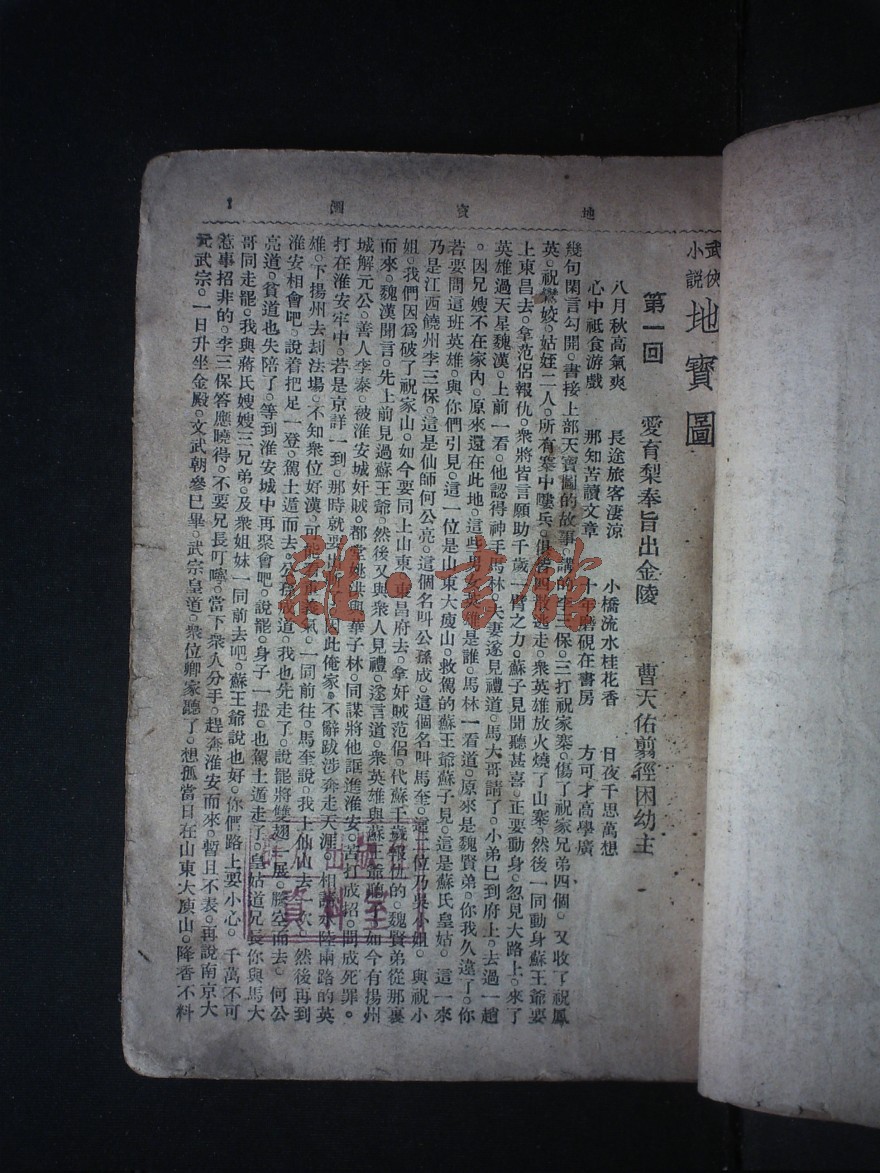 地寶圖
1
武俠小說 地寶圖
第一回 愛有梨奉旨出金陵 曹天佑翦徑困幼主
八月秋高氣爽 長途旅客淒涼 小橋流水桂花香 日夜千思萬想
心中祗食游戲 那知苦讀文章 十年磨硯在書房 方可才高學廣
幾句閑言勾開。書接上部天寶圖的故事。講的李三保。三打祝家寨。傷了祝家兄弟四個。又收了祝鳳
英。祝鸞姣。姑姪二人。所有寨中嘍兵。俱各四散逃走。衆英雄放火燒了山寨。然後一同動身蘇王爺要
上東昌去。拿范侶報仇。衆將皆言願助千歲一臂之力。蘇子見聞聽甚喜。正要動身。忽見大路上。來了
英雄過天星魏漢。上前一看。他認得神手馬林。夫妻遂見禮道。馬大哥請了。小弟已到府上。去過一趟
。因兄嫂不在家內。原來還在此地。這些男女英雄是誰。馬林一看道。原來是魏賢弟。你我久違了。你
若要問這班英雄。與你們引見。這一位是山東大瘦山。救駕的蘇王爺蘇子見。這是蘇氏皇姑。這一來
乃是江西饒州李三保。這是仙師何公亮。這個名叫公孫成。這個名叫馬奎。這一位乃吳小姐。與祝小
姐。我們因爲破了祝家山。如今要同上山東。東昌府去。拿奸賊范侶。代蘇王千歲報仇的。魏賢弟從那裏
而來。魏漢聞言。先上前見過蘇王爺。然後又與衆人見禮。遂言道。衆英雄與蘇王爺聽了。如今有揚州
城解元公。善人李泰。被淮安城奸賊。都堂姚洪與華子林。同謀將他誆進淮安。苦打成招。問成死罪。
打在淮安牢中。若是京詳一到。那時就要因此俺家。不辭跋涉奔走天涯。相請水陸兩路的英
雄。下揚州去刦法場。不知衆位好漢。可能義氣。一同前往。馬奎說。我上仙山去一次。然後再到
淮安相會吧。說着把足一登。駕土遁而去。公孫成道。我也先走了。說罷將雙翅一展。騰空而去。何公
亮道。貧道也失陪了。等到淮安城中再聚會吧。說罷。身子一扭。也駕土遁走了。皇姑道兄長你與馬大
哥同走罷。我與蔣氏嫂嫂三兄弟。及衆姐妹一同前去吧。蘇王爺說也好。你們路上要小心。千萬不可
惹事招非的。李三保答應曉得。不要兄長叮嚀。當下衆人分手。趕奔淮安而來。暫且不表。再說南京大
元武宗。一日升坐金殿。文武朝參已畢。武宗皇道。衆位卿家聽了。想孤當日在山東大庾山。降香不料
資料室
雜·書館